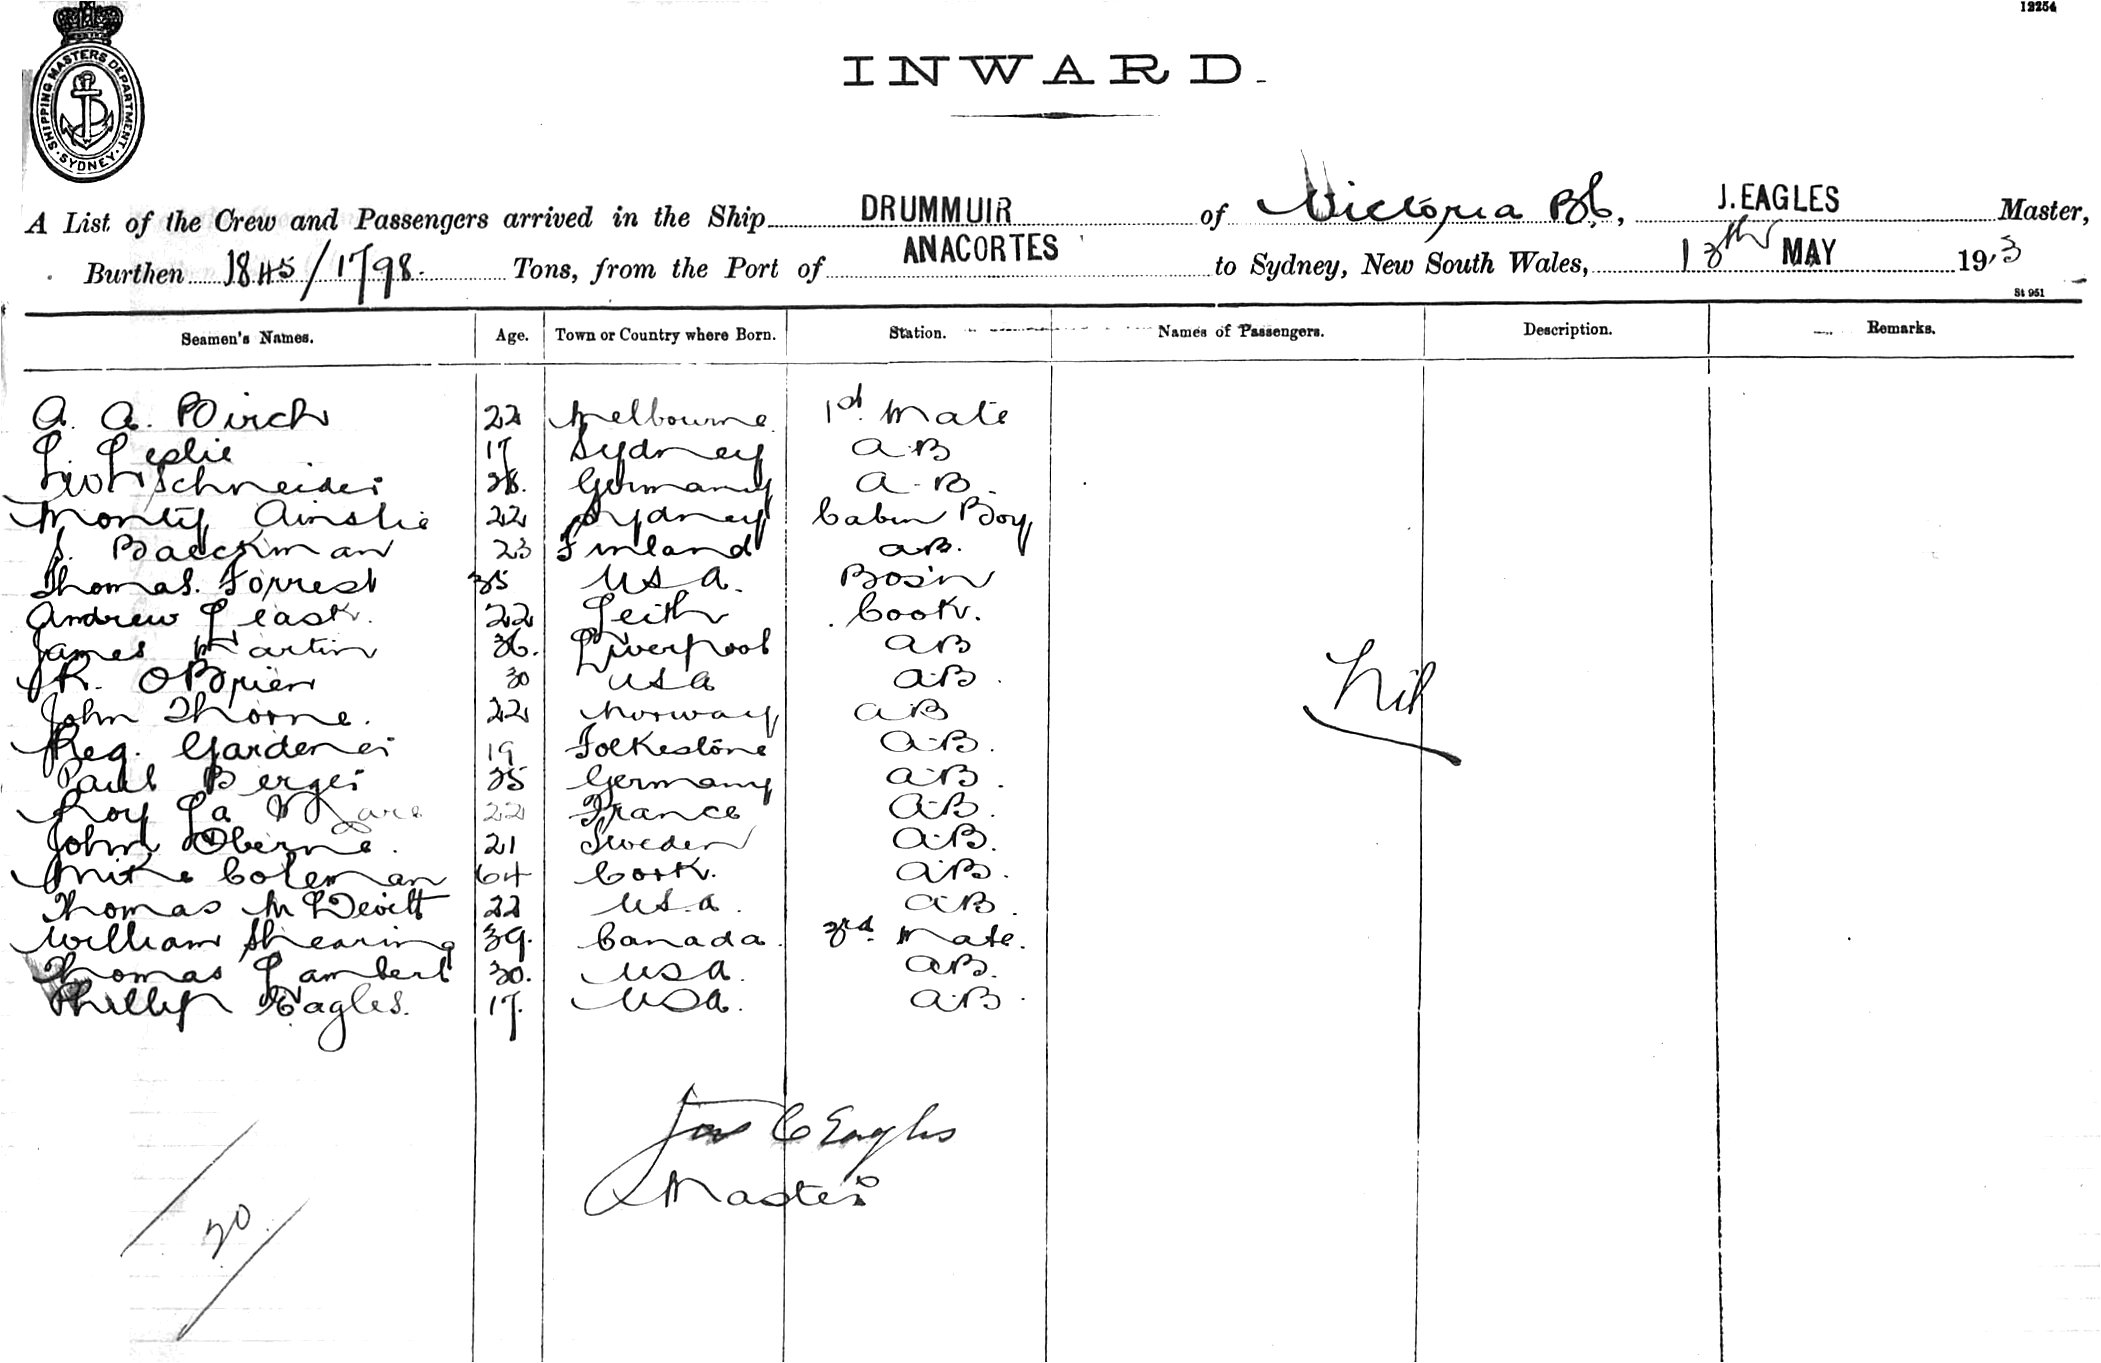 12254
SHIPPING MASTERS DEPARTMENT · SYDNEY ·
INWARD.
A List of the Crew and Passengers arrived in the Ship DRUMMUIR of Victoria BC, J. EAGLES Master,
Burthen 1845/1798. Tons, from the Port of ANACORTES to Sydney, New South Wales, 13th MAY 1913
St 951
Seamen's Names. Age. Town or Country where Born. Station. Names of Passengers. Description. Remarks.
A. A. Birch 22 Melbourne 1st Mate
L. Leslie 17 Sydney A.B
Schneider 28. Germany A.B.
Monty Ainslie 22 Sydney Cabin Boy
S. Baeckman 23 Finland A.B.
Thomas. Forrest 35 USA. Bos'n
Andrew Leask. 22 Leith Cook.
James Martin 36. Liverpool A B
R. OBrien 30 USA A.B.
John Thorne. 22 Norway A B
Reg. Gardener 19 Folkestone A.B.
Paul Berger 35 Germany A.B.
Roy La 22 France A.B.
John Oberne. 21 Sweden A.B.
Mike Coleman 64 Cork. A.B.
Thomas McDevitt 22 U.S.A. A.B.
William Shearing 39. Canada. 3rd Mate.
Thomas Lambert 30. USA. A.B.
Phillip Eagles. 17. USA. A.B.
Nil
Jas C Eagles
Master
20